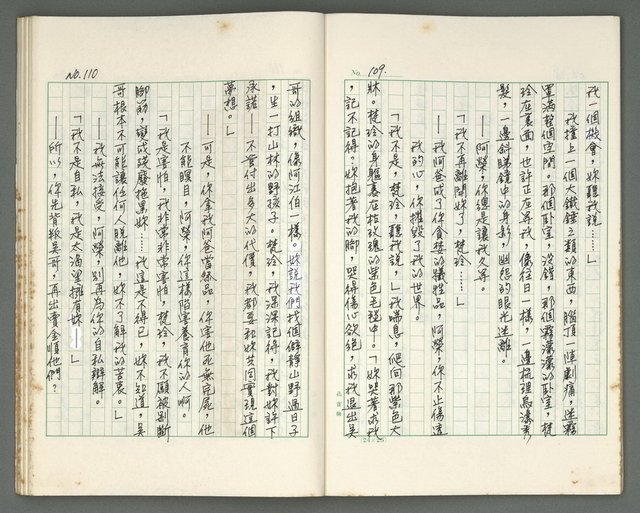 No. 109.
我一個機會，妳聽我說……」
我撞上一個大鐵錘之類的東西，腦頂一陣劇痛，迷霧
罩滿整個空間。那個臥室，沒錯，那個霧濛濛的臥室，梵
玲在裏面，也許正在昇我，像往日一樣，一邊梳理烏溱秀
髮，一邊斜睇鏡中的身影，幽怨的眼光迷離。
——阿榮，你總是讓我久等。
「我不再離開妳了，梵玲……」
——我阿爸成了你貪婪的犧牲品，阿榮，你不止傷透
我的心，你摧毀了我的世界。
「我不是，梵玲，聽我說，」我喘息，爬向那紫色大
牀。梵玲的身軀裏在桔玫瑰的紫色毛毯中。「妳哭著求我
，記不記得？妳抱著我的腳，哭得傷心欲絕，求我退出吳
(24×25)
No. 110
哥的組織，像阿江伯一樣。妳說我們找個僻靜山野過日子
，生一打山林的野孩子。梵玲，我深深記得，我對妳許下
承諾——不管付出多大的代價，我都要和妳共同實現這個
夢想。」
——可是，你拿我阿爸當祭品，你害他死無完屍，他
不能瞑目，阿榮，你這樣陷害養育你的人啊。
「我是害怕，我非常非常害怕，梵玲，我不願被割斷
腳筋，變成殘廢拖累妳……我這是不得已，妳不知道，吳
哥根本不可能讓任何人脫離他，妳不了解我的苦衷。」
——我無法接受，阿榮，別再為你的自私辯解。
「我不是自私，我是太渴望擁有妳——」
——所以，你先背叛吳哥，再出賣金順他們？